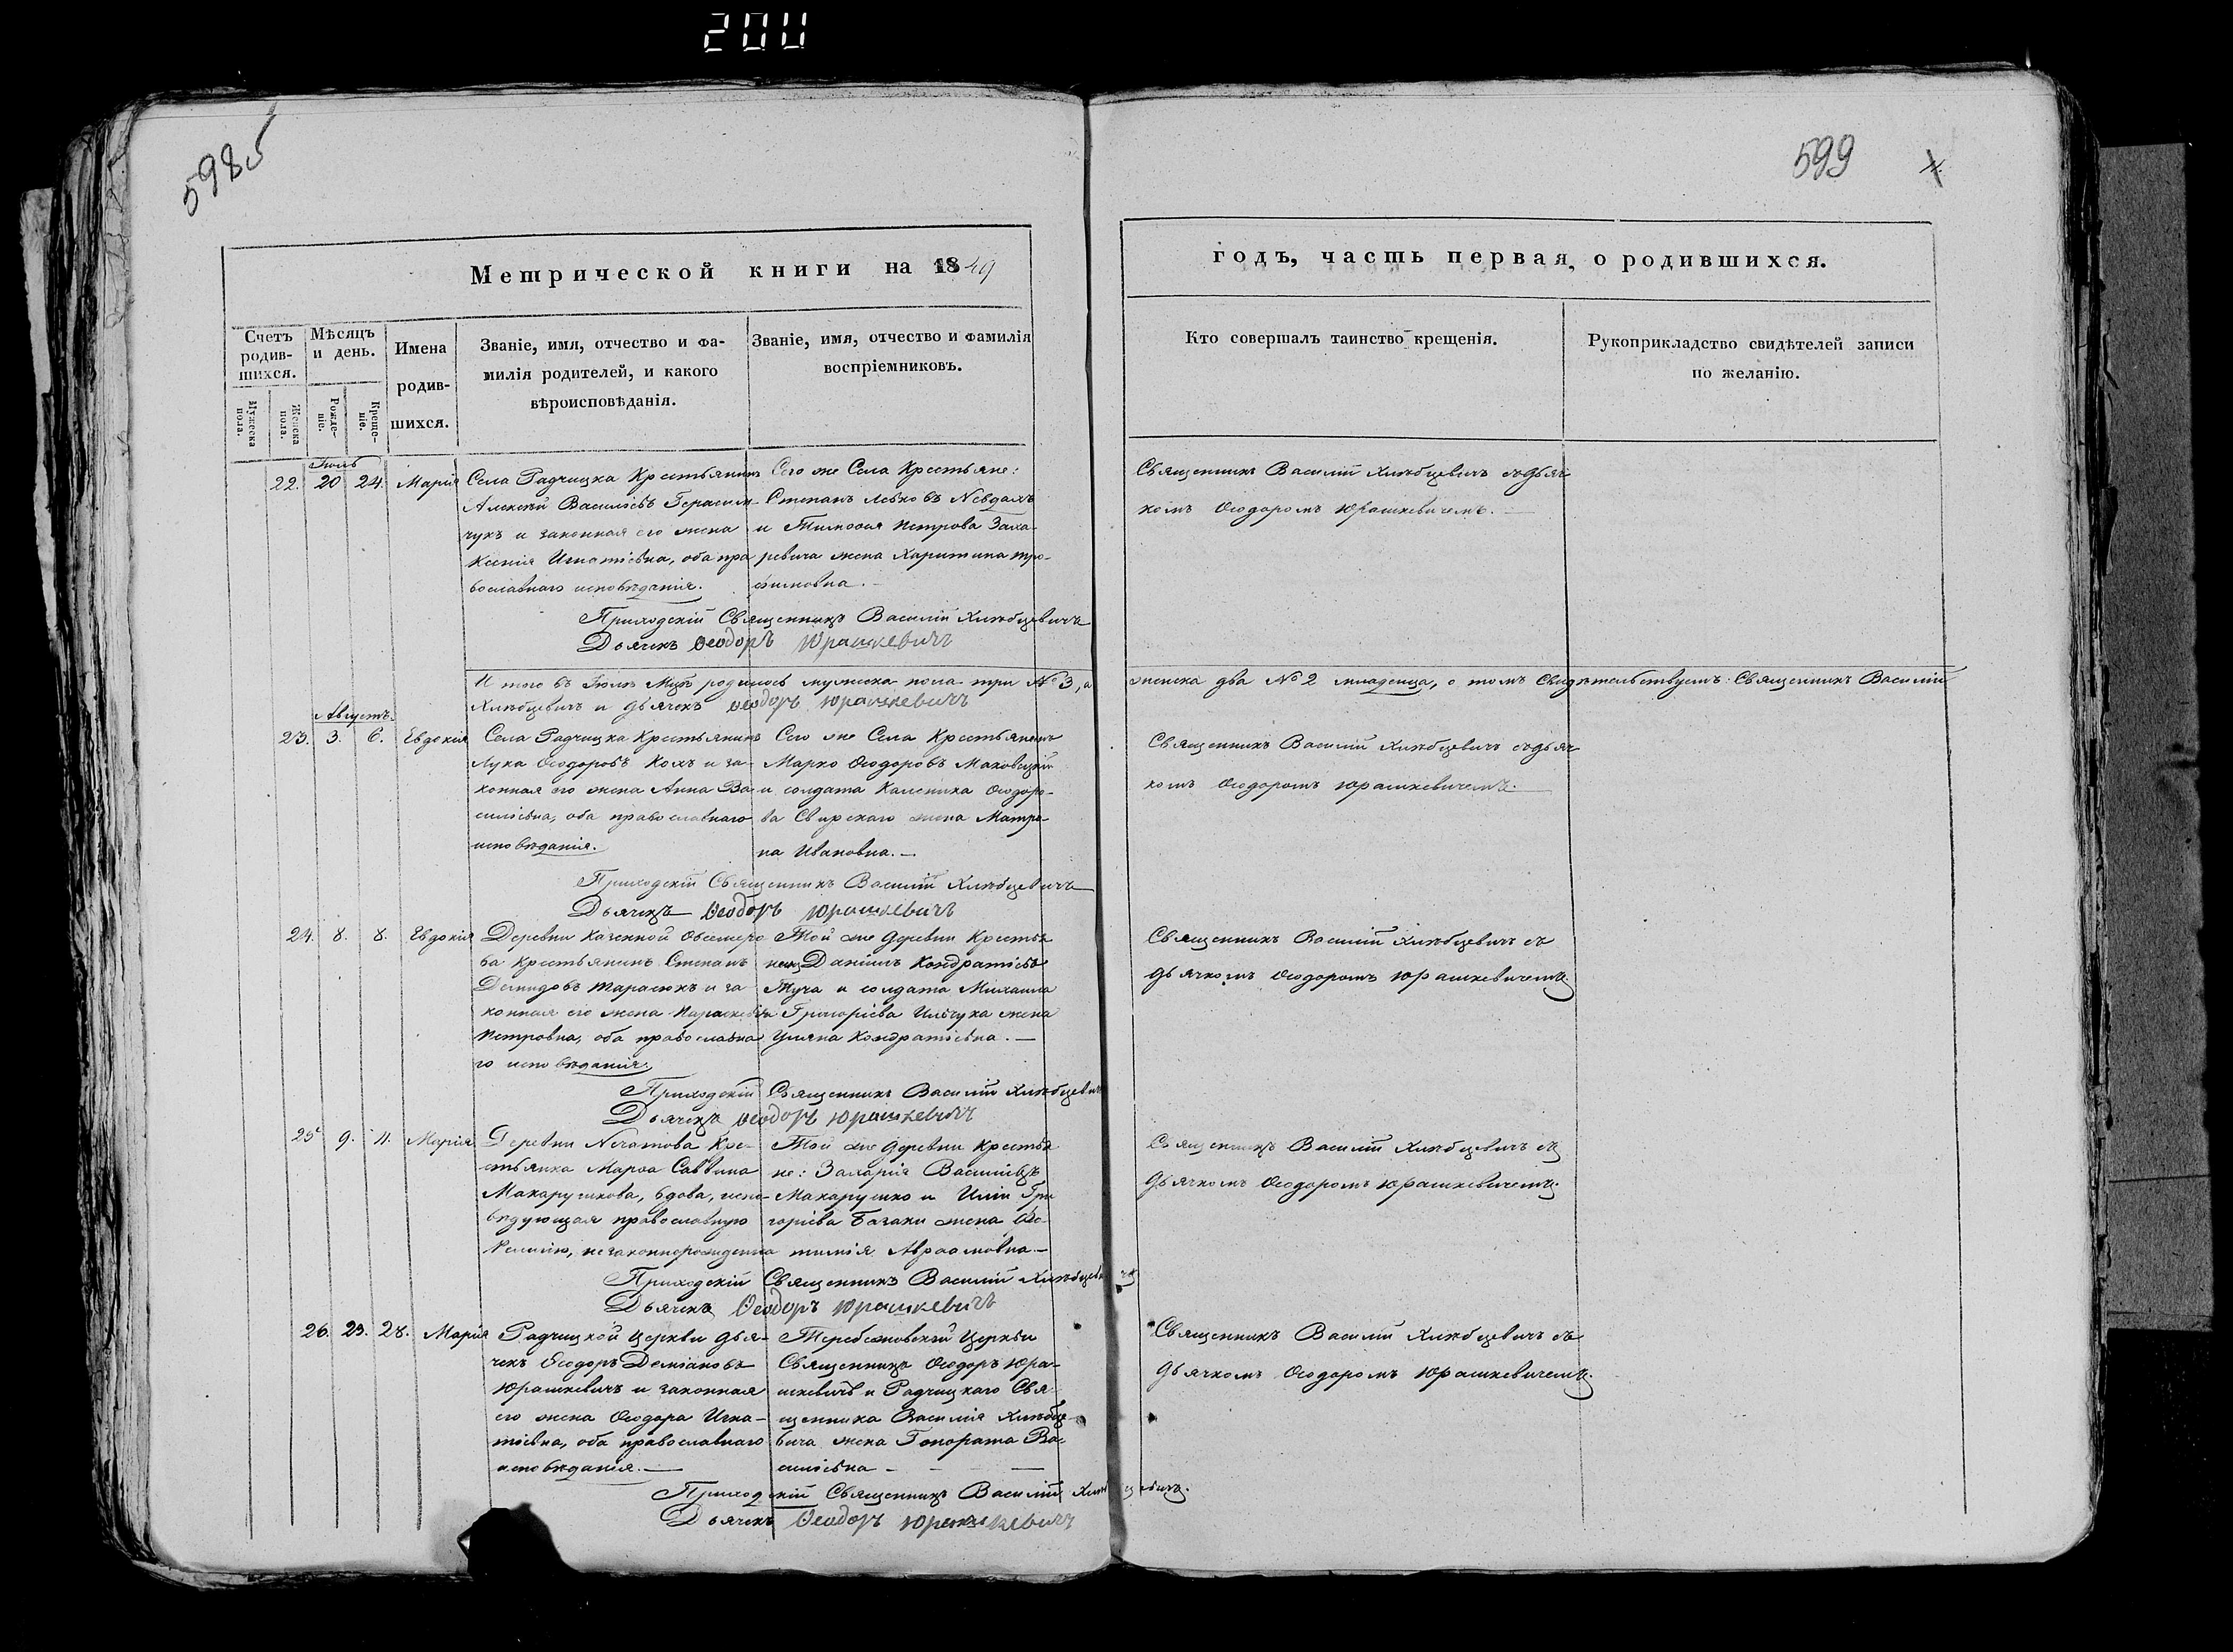 200
598 5
599
Метрической книги на 1849
годъ, часть первая, о родившихся.
Счетъ родив-шихся.
Мужеска пола.
Женска пола.
Мѣсяцъ и день.
Рожде-ніе.
Креще-ніе.
Имена
родив-
шихся.
Званіе, имя, отчество и фа-
милія родителей, и какого
вѣроисповѣданія.
Званіе, имя, отчество и фамилія
воспріемниковъ.
Кто совершалъ таинство крещенія.
Рукоприкладство свидѣтелей записи
по желанію.
Іюль
22. 20 24. Марія
Села Радчицка Крестьянинъ
Алексѣй Василіевъ Герасим-
чукъ и законная его жена
Ксенія Игнатіевна, оба пра
вославнаго исповѣданія.
Сего же Села Крестьяне:
Степанъ Левковъ Невдахъ
и Тимофея Петрова Заха-
ревича жена Харитина Тро-
фимовна.
Священникъ Василій Хлѣбцевичъ съ дьяч
комъ Ѳеодоромъ Юрашкевичемъ.
Приходскій Священникъ Василій Хлѣбцевичъ
Дьячекъ Ѳеодоръ Юрашкевичъ
И того въ Іюлѣ Мцѣ родилось мужеска пола три № 3, а
женска два № 2 младенца, о томъ свидѣтельствуемъ: Священникъ Василій
Хлѣбцевичъ и дьячекъ Ѳеодоръ Юрашкевичъ
Августъ.
23. 3. 6. Евдокія
Села Радчицка Крестьянинъ
Лука Ѳеодоровъ Кохъ и за-
конная его жена Анна Ва-
силіевна, оба православнаго
исповѣданія.
Сего же Села Крестьянинъ
Марко Ѳеодоровъ Маковецкій
и солдата Каленика Ѳеодоро-
ва Свирскаго жена Матро-
на Ивановна.
Священникъ Василій Хлѣбцевичъ съ дьяч
комъ Ѳеодоромъ Юрашкевичемъ.
Приходскій Священникъ Василій Хлѣбцевичъ
Дьячекъ Ѳеодоръ Юрашкевичъ
24. 8. 8. Евдокія
Деревни Казенной Овсемеро
ва Крестьянинъ Степанъ
Демидовъ Тарасюкъ и за
конная его жена Параскевія
Петровна, оба православна
го исповѣданія.
Той же деревни Крестья
нинъ Даніилъ Кондратіевъ
Туча и солдата Михаила
Григоріева Ильчука жена
Уляна Кондратіевна.
Священникъ Василій Хлѣбцевичъ съ
дьячкомъ Ѳеодоромъ Юрашкевичемъ.
Приходскій Священникъ Василій Хлѣбцевичъ
Дьячекъ Ѳеодоръ Юрашкевичъ
25 9. 11. Марія
Деревни Нечатова Кре-
стьянка Марѳа Саввина
Макарушкова, вдова, испо-
вѣдующая православную
Религію, незаконнорожденна
Той же деревни Крестья
не: Захарія Василіевъ
Макарушко и Иліи Гри
горіева Багаки жена Ѳе-
тинія Авраамовна.
Священникъ Василій Хлѣбцевичъ съ
дьячкомъ Ѳеодоромъ Юрашкевичемъ.
Приходскій Священникъ Василій Хлѣбцевичъ
Дьячекъ Ѳеодоръ Юрашкевичъ
26. 23. 28. Марія
Радчицкой Церкви дья-
чекъ Ѳеодоръ Деміановъ
Юрашкевичъ и законная
его жена Ѳеодора Игна-
тіевна, оба православнаго
исповѣданія.
Теребежовской Церкви
Священникъ Ѳеодоръ Юра-
шкевичъ и Радчицкаго Свя
щенника Василія Хлѣбце-
вича жена Гонората Ва-
силіевна
Священникъ Василій Хлѣбцевичъ съ
дьячкомъ Ѳеодоромъ Юрашкевичемъ.
Приходскій Священникъ Василій Хлѣбцевичъ.
Дьячекъ Ѳеодоръ Юрашкевичъ